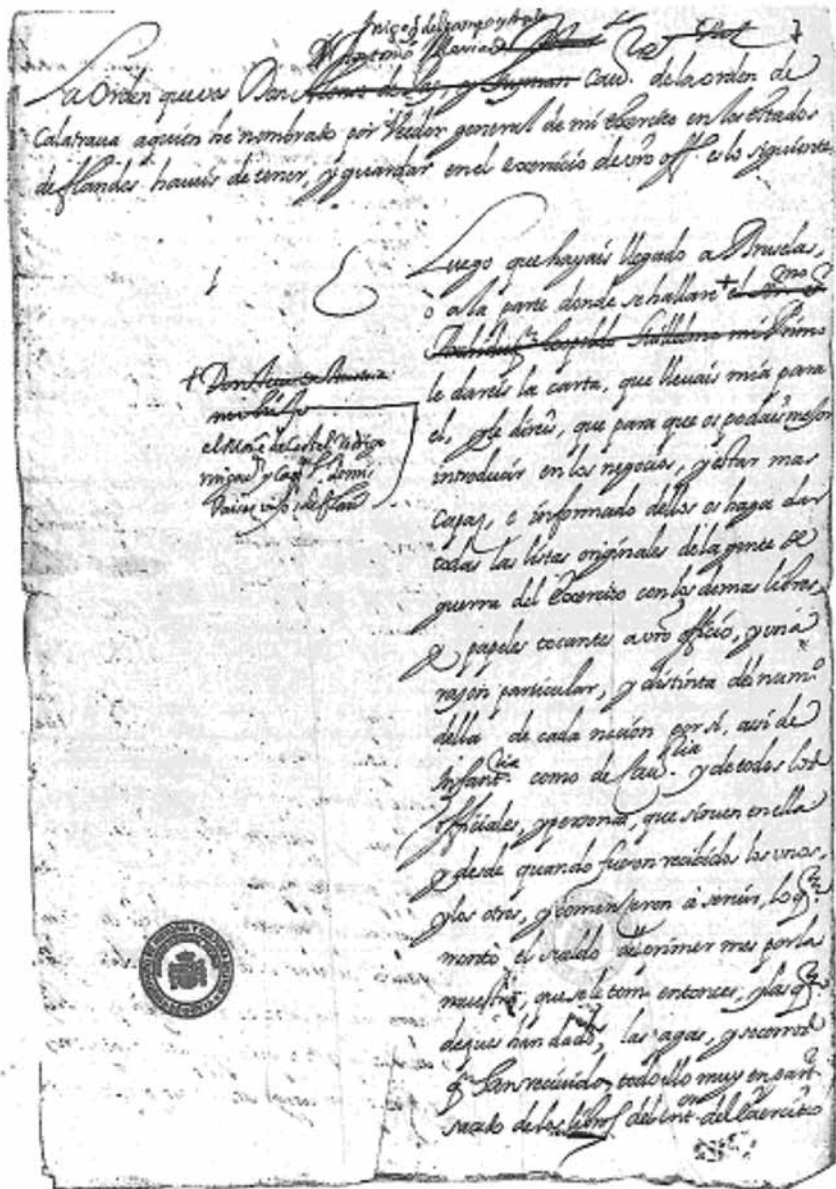 La Orden que vos Don Cau.º de la orden de
Calatraua aquien he nombrado por Veedor general de mi Exercito en los Estados
de flandes haueis de tener, y guardar en el exercicio de vrō off.º es lo siguiente
Luego que hayais llegado a Bruselas,
ò a la parte donde se hallare + el
Leopoldo Guillermo mi Primo
le dareis la carta, que lleuais mia para
el, y le direis, que para que os podais mejor
introducir en los negocios, y estar mas
capaz, e informado dellos os haga dar
todas las listas originales de la gente de
guerra del Exercito con los demas libros,
y papeles tocantes a vrō officio, y una
razon particular, y distinta del num.º
della de cada nacion por si, assi de
Infant.ria como de Cau.lia y de todos los
officiales, y personas, que siruen en ella
y desde quando fueron recibidos los unos,
y los otros, y comensaron à seruir, lo q.
montò el sueldo del primer mes por la
muestra, que se le tomò entonces, y las q.
despues han dado, las pagas, y socorros
q. han reciuido, todo ello muy en part.
sacado de los libros del del Exercito
+ Don Juan de Austria
mi hijo
el Marq. de Castel Rodrigo
mi gou.or y Cap.
Paises de flan